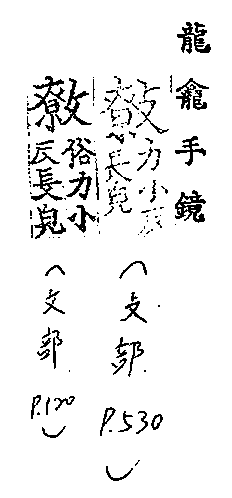 龍龕手鏡
力小反
長皃
（支部
P.530）
俗力小
反長皃
（文部
P.120）